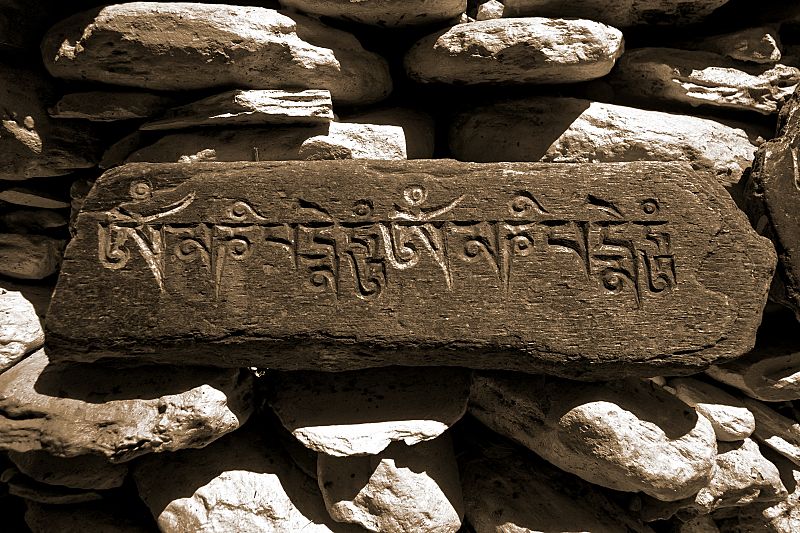 ༀམཎིཔདྨེཧཱུྃༀམཎིཔདྨེཧཱུྃ